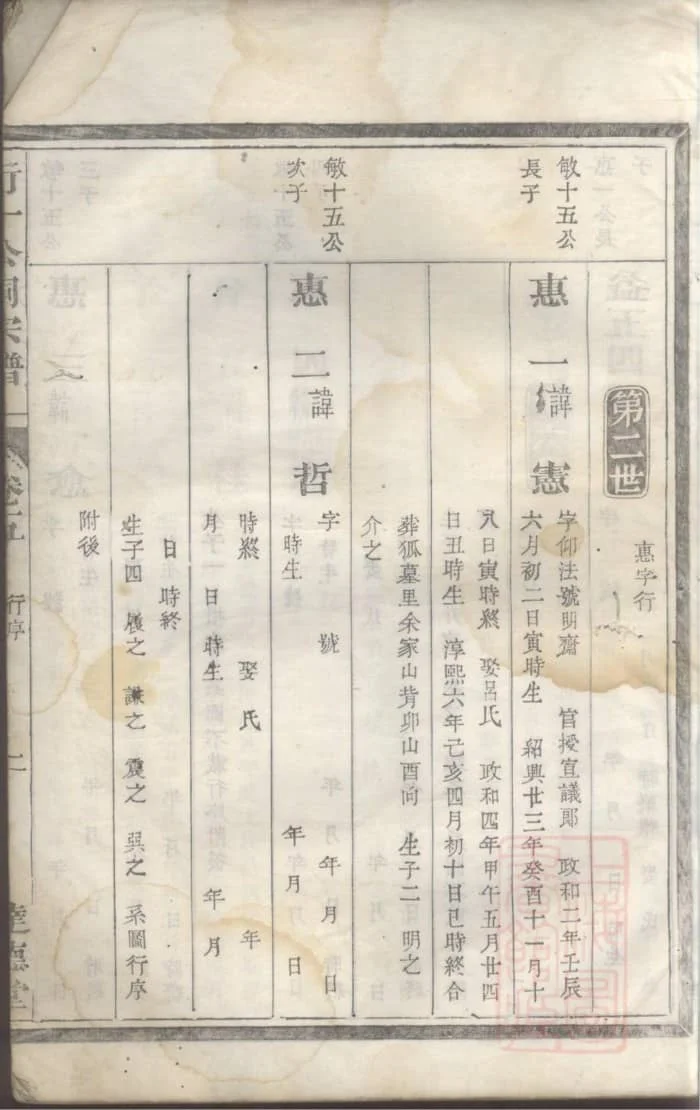 第二世
惠字行
敏十五公
長子
惠一諱憲
字仰法號明齋 官授宣議郎 政和二年壬辰
六月初二日寅時生 紹興廿三年癸酉十一月十
八日寅時終 娶呂氏 政和四年甲午五月廿四
日丑時生 淳熙六年己亥四月初十日巳時終合
葬狐墓里余家山背卯山酉向 生子二 明之
介之
敏十五公
次子
惠二諱哲
字 號 年 月 日
時生 年 月 日
時終 娶 氏 年
月 日 時生 年 月
日 時終
生子四 履之 謙之 震之 巽之 系圖行序
附後
宗譜
卷之五
行序
二
達德堂